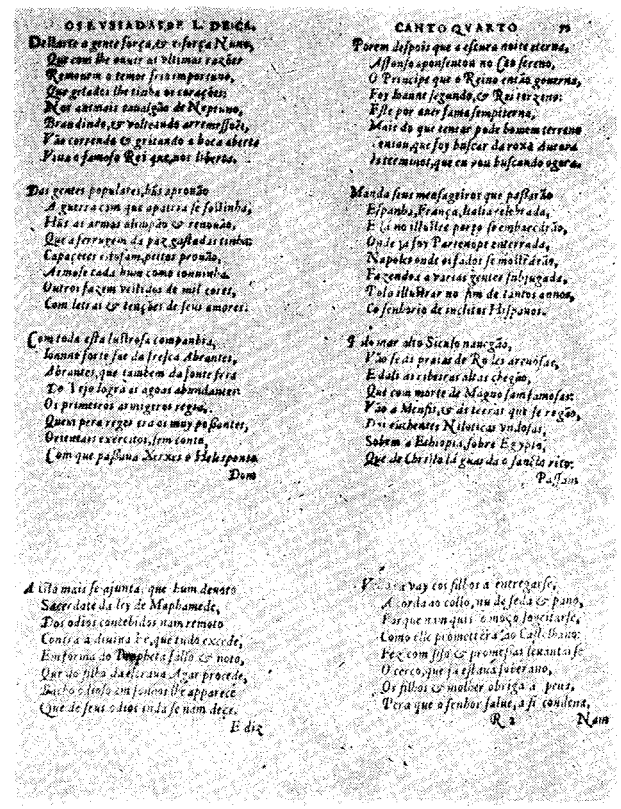 OS LVSIADAS DE L. DE CA.
Destarte a gente força, & esforça Nuno,
Que com lhe ouuir as vltimas razões
Remouem o temor frio importuno,
Que gelados lhe tinha os corações:
Nos animais caualgão de Neptuno,
Brandindo, & volteando arremessões,
Vão correndo & gritando a boca aberta
Viua o famoso Rei que nos liberta.
Das gentes populares, hũs aprouão
A guerra com que a patria se sostinha,
Hũs as armas alimpão & renouão,
Que a ferrugem da paz gastadas tinha:
Capacetes estofam, peitos prouão,
Armase cada hum como conuinha,
Outros fazem vestidos de mil cores,
Com letras & tenções de seus amores.
Com toda esta lustrosa companhia,
Ioanne forte sae da fresca Abrantes,
Abrantes, que tambem da fonte fria
Do Tejo logra as agoas abundantes:
Os primeiros armigeros regia,
Quem pera reger era os muy possantes,
Orientais exercitos, sem conto,
Com que passaua Xerxes o Helesponto.
Dom
A isto mais se ajunta, que hum deuoto
Sacerdote da ley de Maphamede,
Dos odios concebidos nam remoto
Contra a diuina Fe, que tudo excede,
Em forma do Propheta falso & noto,
Que do filho da escraua Agar procede,
Bacho odioso em sonhos lhe apparece
Que de seus odios inda se nam dece.
E diz
CANTO QVARTO
Porem despois que a escura noite eterna,
Affonso aposentou no Ceo sereno,
O Principe que o Reino então gouerna,
Foy Ioanne segundo, & Rei terzeno:
Este por auer fama sempiterna,
Mais do que tentar pode homem terreno
Tentou, que foy buscar da roxa Aurora
Os terminos, que eu vou buscando agora.
Manda seus mensageiros que passarão
Espanha, França, Italia celebrada,
E la no illustre porto se embarcarão,
Onde ja foy Partenope enterrada,
Napoles onde os fados se mostrarão,
Fazendoa a varias gentes subjugada,
Pola illustrar no fim de tantos annos,
Co senhorio de inclitos Hispanos.
Pelo mar alto Siculo nauegão,
Vão se às praias de Rodes arenosas,
E dali as ribeiras altas chegão,
Que com morte de Magno sam famosas:
Vão a Menfis, & às terras que se regão,
Das enchentes Niloticas vndosas,
Sobem a Ethiopia, sobre Egypto,
Que de Christo là guarda o sancto rito.
Passam
vay cos filhos a entregarse,
A corda ao collo, nu de seda & pano,
Porque nam quis o moço sogeitarse,
Como elle promettera ao Castelhano:
Fez com siso & promessas leuantarse
O cerco, que ja estaua soberano,
Os filhos & molher obriga a pena,
Pera que o senhor salue, a si condena,
R 2 Nam